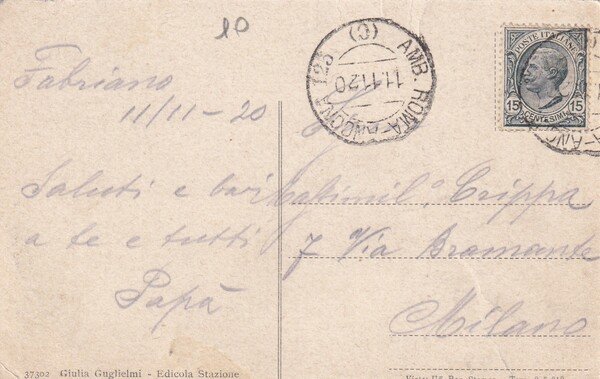 10
Fabriano
11/11-20
Saluti e baci
a te e tutti
Papà
Crippa
7 Via Bramante
Milano
AMB. ROMA-ANCONA 123 (O)
11.11.20
POSTE ITALIANE
15 15
CENTESIMI
37302 Giulia Guglielmi - Edicola Stazione